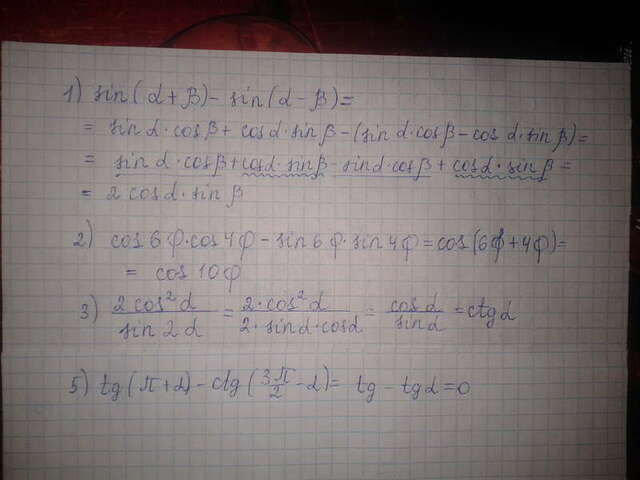 1) sin(α+β)-sin(α-β)=
= sin α·cos β+ cos α·sin β-(sin α·cos β-cos α·sin β)=
= sin α·cos β+cos α·sin β-sin α·cos β+cos α·sin β=
= 2 cos α·sin β
2) cos 6φ·cos 4φ-sin 6φ·sin 4φ=cos(6φ+4φ)=
= cos 10φ
3) 2 cos² α / sin 2 α = 2·cos² α / 2·sin α·cos α = cos α / sin α = ctg α
5) tg(π+α)-ctg(3π/2-α)= tg - tg α=0